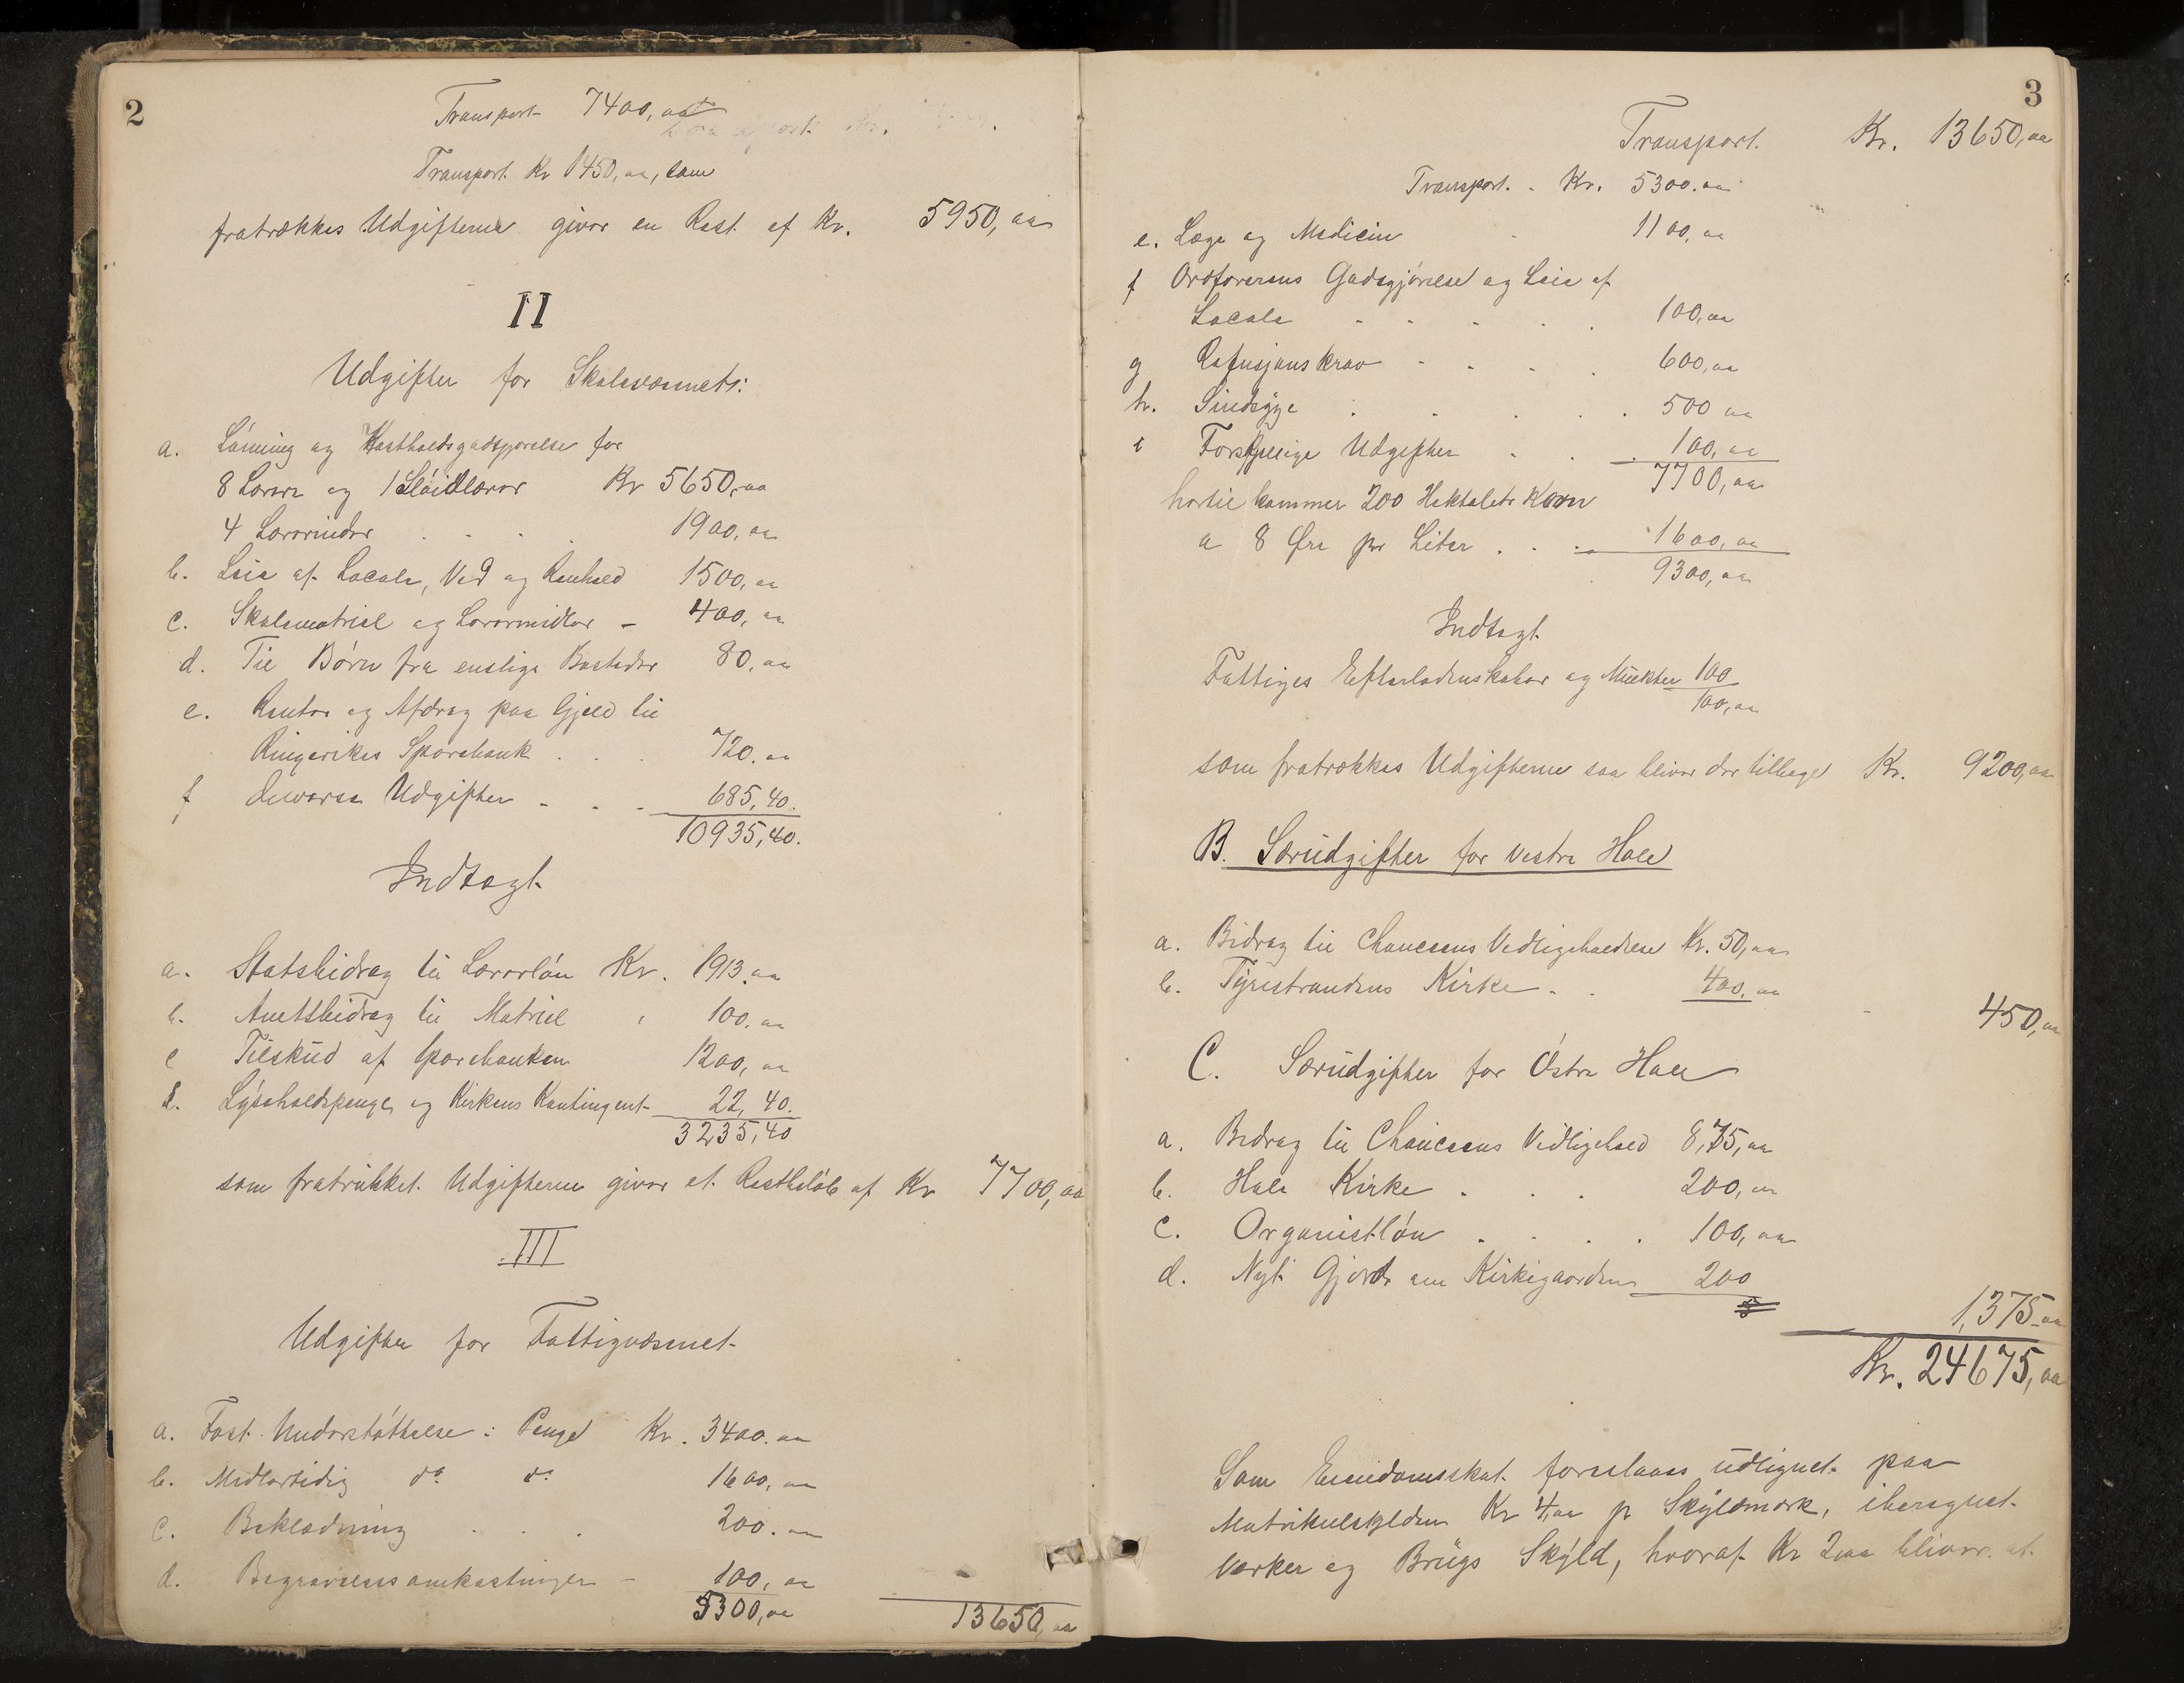 2
Transport 7400,00
Transport Kr 1450,00, som
fratrækkes Udgifterne giver en Rest af Kr. 5950,00
II
Udgifter for Skolevæsenets:
a. Lönning og Kostholdsgodtgjørelse for
8 Lærere og 1 Slöidlærer Kr 5650,00
4 Lærerinder . . . 1900,00
b. Leie af Locale, Ved og Renhold 1500,00
c. Skolematriel og Lærermidler - 400,00
d. Til Børn fra enslige Bosteder 80,00
e. Renter og Afdrag paa Gjeld til
Ringerikes Sparebank . . . 720.00
f diverse Udgifter - - - 685,40.
10935,40.
Indtægt
a. Statsbidrag til Lærerlön Kr. 1913.00
b. Amtsbidrag til Matriel " 100.00
c Tilskud af Sparebanken 1200,00
d. Lysholdspenge og Kirkens Kontingent 22,40.
3235,40
som fratrukket Udgifterne giver et Restbelöb af Kr 7700,00
III
Udgifter for Fattigvæsenet
a. Fast Understöttelse: Penge Kr. 3400.00
b. Midlertidig do do 1600,00
c. Beklædning . . . 200.00
d. Begravelsesomkostninger - 100,00
5300,00 13650,00
3
Transport. Kr. 13650,00
Transport. - Kr. 5300.00
e. Læge og Medicin - 1100,00
f Ordførerens Godtgjörelse og Leie af
Locale - - - - . 100,00
g Refusjonskrav - - - . 600,00
h. Sindsyge . . . . . 500 00
i Forskjellige Udgifter . . . 100,00
7700,00
hertil kommer 200 Hektoliter Korn
a 8 Øre pr Liter . . . 1600,00
9300,00
Indtægt
Fattiges Efterladenskaber og Mulkter 100
100,00
som fratrækkes Udgifterne saa bliver der tilbage Kr. 9200,00
B. Særudgifter for vestre Hole
a. Bidrag til Chauceens Vedligeholdelse Kr. 50,00
b. Tyristrandens Kirke - . 400.00
450,00
C. Særudgifter for Östre Hole
a. Bidrag til Chauceens Vedligehold 8,75,00
b. Hole Kirke . . . 200,00
c. Organistlön . . . . 100,00
d. Nyt Gjærde om Kirkegaarden 200
1,375-00
Kr. 24675,00
Som Eiendomsskat foreslaaes udlignet paa
Matrikulskylden Kr 4,00 pr Skyldmark, iberegnet
Værker og Brugs Skyld, hvoraf Kr 2,00 bliver at